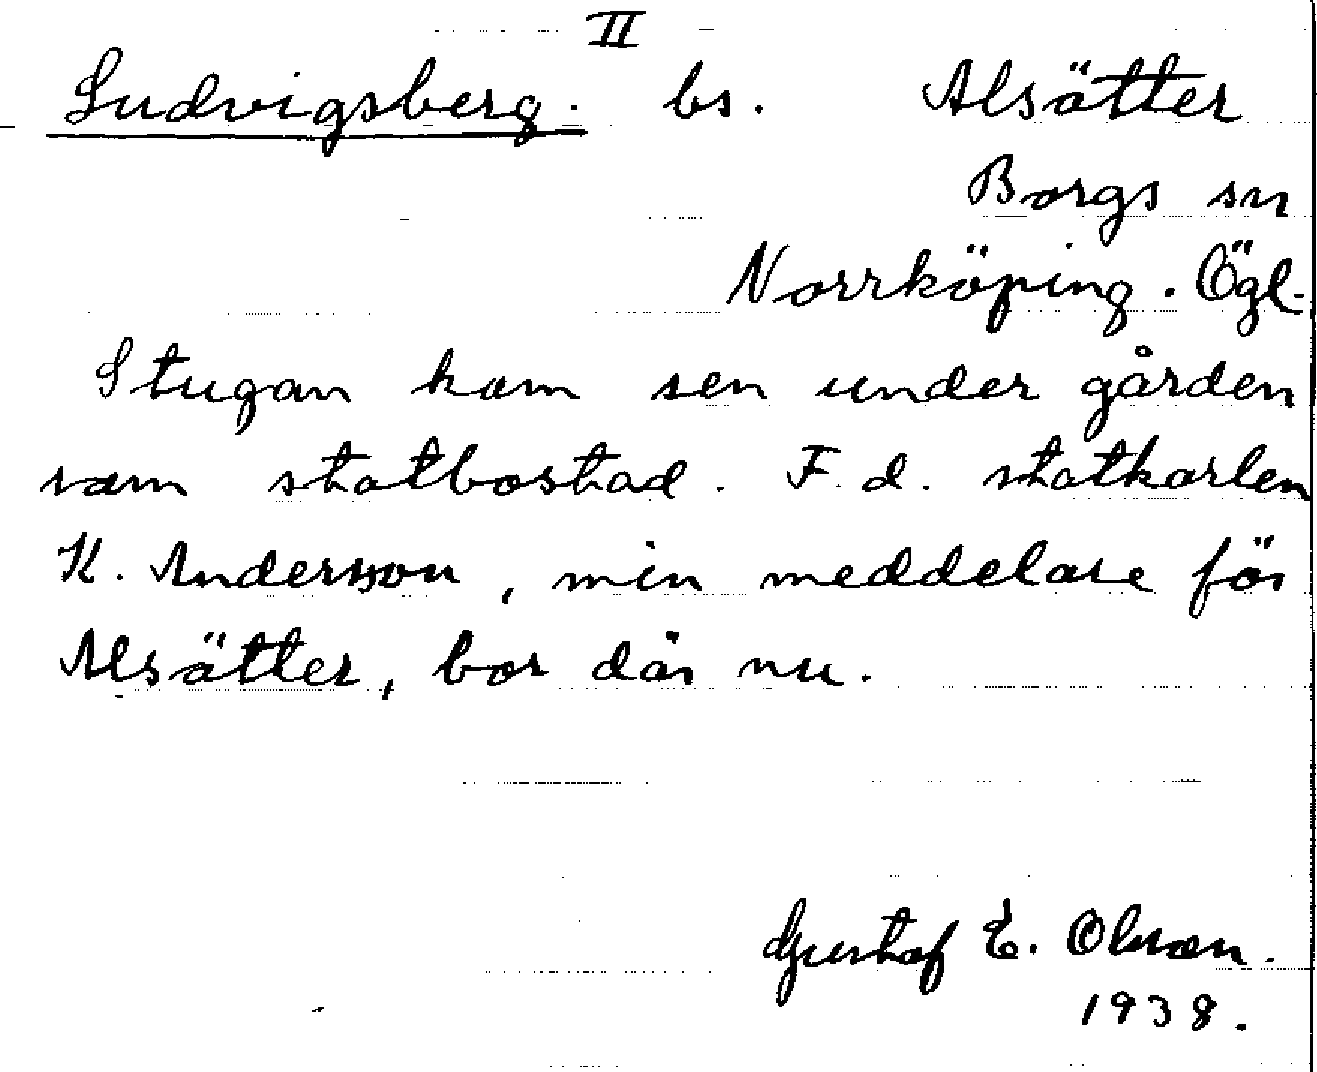 II
Ludvigsberg. bs. Alsätter
Borgs sn
Norrköping. Ögl.
Stugan kom sen under gården
som statbostad. F.d. statkarlen
K. Anderson, min meddelare för
Alsätter, bor där nu.
Gustaf E. Olsson.
1938.